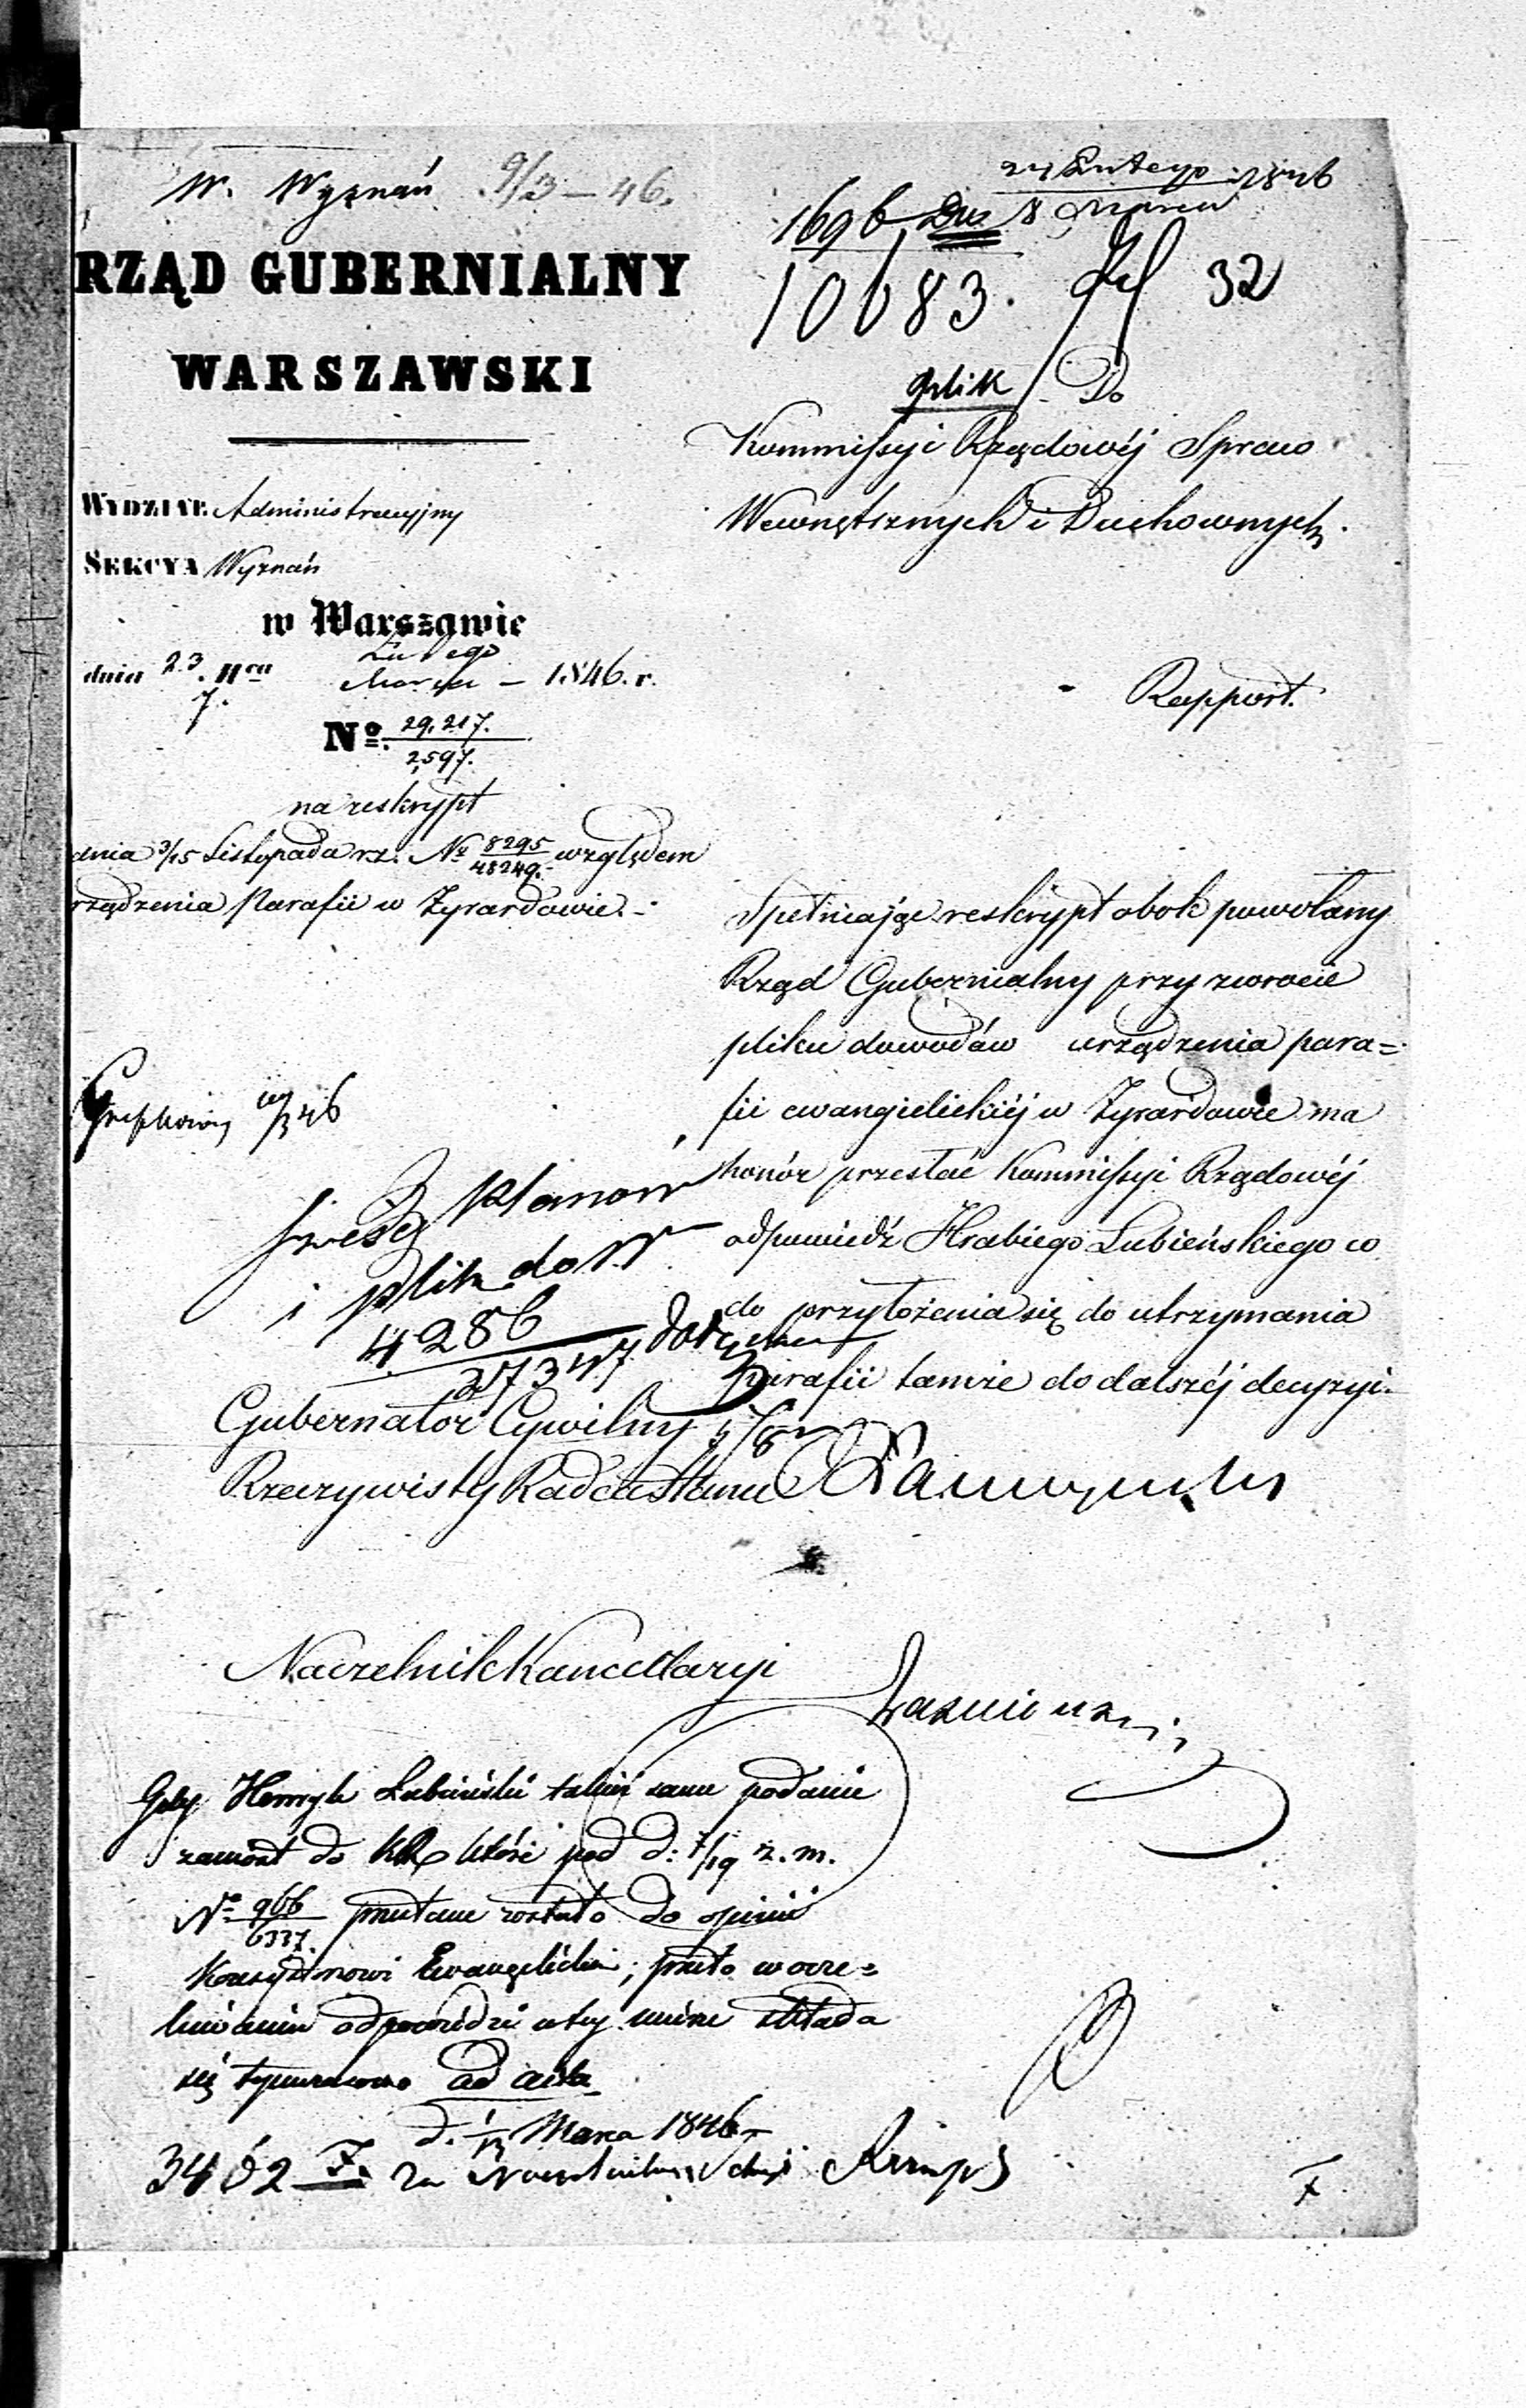 W. Wyznań 9/3 – 46.
24 Lutego 1846
8 Marca
1696 Dus
10683. 32
plik
RZĄD GUBERNIALNY
WARSZAWSKI
WYDZIAŁ Administracyjny
SEKCYA Wyznań
w Warszawie
dnia 23. Lutego
7. Marca – 1846. r.
No. 29,217.
2,597.
na reskrypt
dnia 3/15 Listopada rz. No 8295 względem
48249.
rządzenia Parafii w Żyrardowie.
Do
Kommissyi Rządowéj Spraw
Wewnętrznych i Duchownych.
Rapport.
Spełniając reskrypt obok powołany
Rząd Gubernialny przy zwrocie
pliku dowodów urządzenia para=
fii ewangielickiéj w Żyrardowie ma
honór przesłać Kommissyi Rządowéj
odpowiedź Hrabiego Łubieńskiego co
do przyłożenia się do utrzymania
parafii tamże do dalszéj decyzyi.
46
planów
i plik do N
4286
27347
Gubernator Cywilny
Rzeczywisty Radca Stanu
Naczelnik Kancellaryi
Gdy Henryk Łubieński takież same podanie
zaniósł do KR które pod d: 7/19 z. m.
No 966 przesłane zostało do opinii
6337.
Konsystorzowi Ewangelickiemu; przeto w ocze=
kiwaniu odpowiedzi w tej mierze składa
się tymczasowo ad acta
d. 1/13 Marca 1846
3402 F. Za Naczelnika